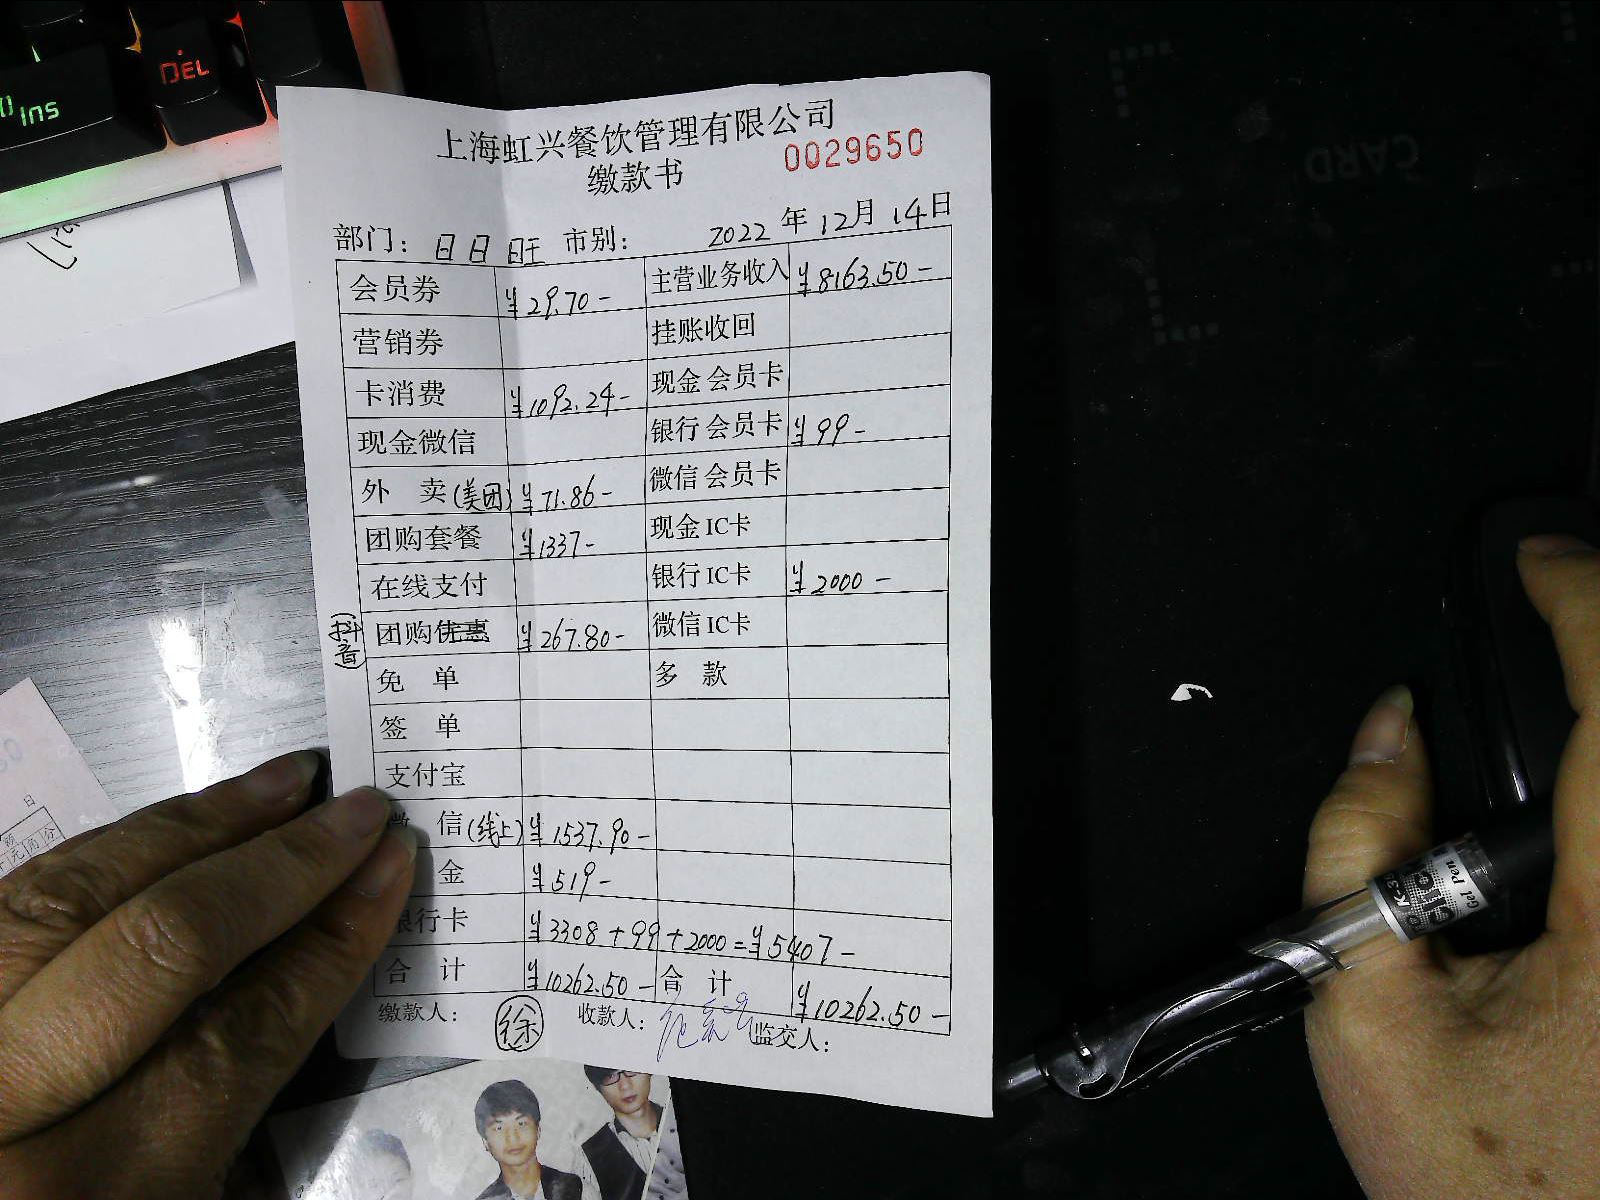 DEL
Ins
上海虹兴餐饮管理有限公司
缴款书
0029650
部门: 日日旺 市别: 2022 年 12月 14日
会员券 ¥29.70- 主营业务收入 ¥8163.50-
营销券 挂账收回
卡消费 ¥1092.24- 现金会员卡
现金微信 银行会员卡 ¥99-
外 卖(美团) ¥71.86- 微信会员卡
团购套餐 ¥1337- 现金IC卡
在线支付 银行IC卡 ¥2000-
(抖音) 团购优惠 ¥267.80- 微信IC卡
免 单 多 款
签 单
支付宝
微 信(线上) ¥1537.90-
金 ¥519-
银行卡 ¥3308+99+2000=¥5407-
合 计 ¥10262.50- 合 计 ¥10262.50-
缴款人: 徐 收款人: 监交人:
CARD
K-35
Gel Pen
日
元角分